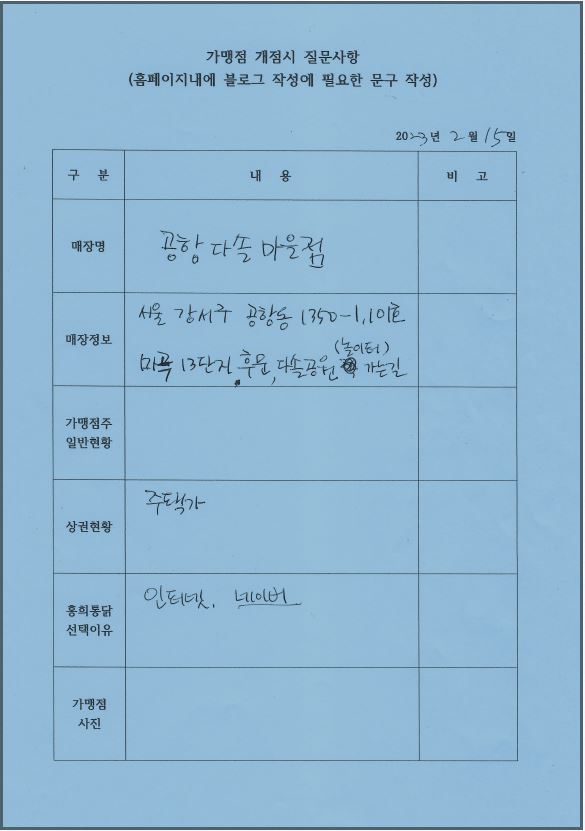 가맹점 개점시 질문사항
(홈페이지내에 블로그 작성에 필요한 문구 작성)
2023년 2월 15일
구 분 내 용 비 고
매장명 공항 다솔 마을점
매장정보 서울 강서구 공항동 1350-1, 101호
(놀이터)
마곡 13단지, 후문, 다솔공원 가는길
가맹점주
일반현황
상권현황 주택가
홍희통닭
선택이유 인터넷, 네이버
가맹점
사진